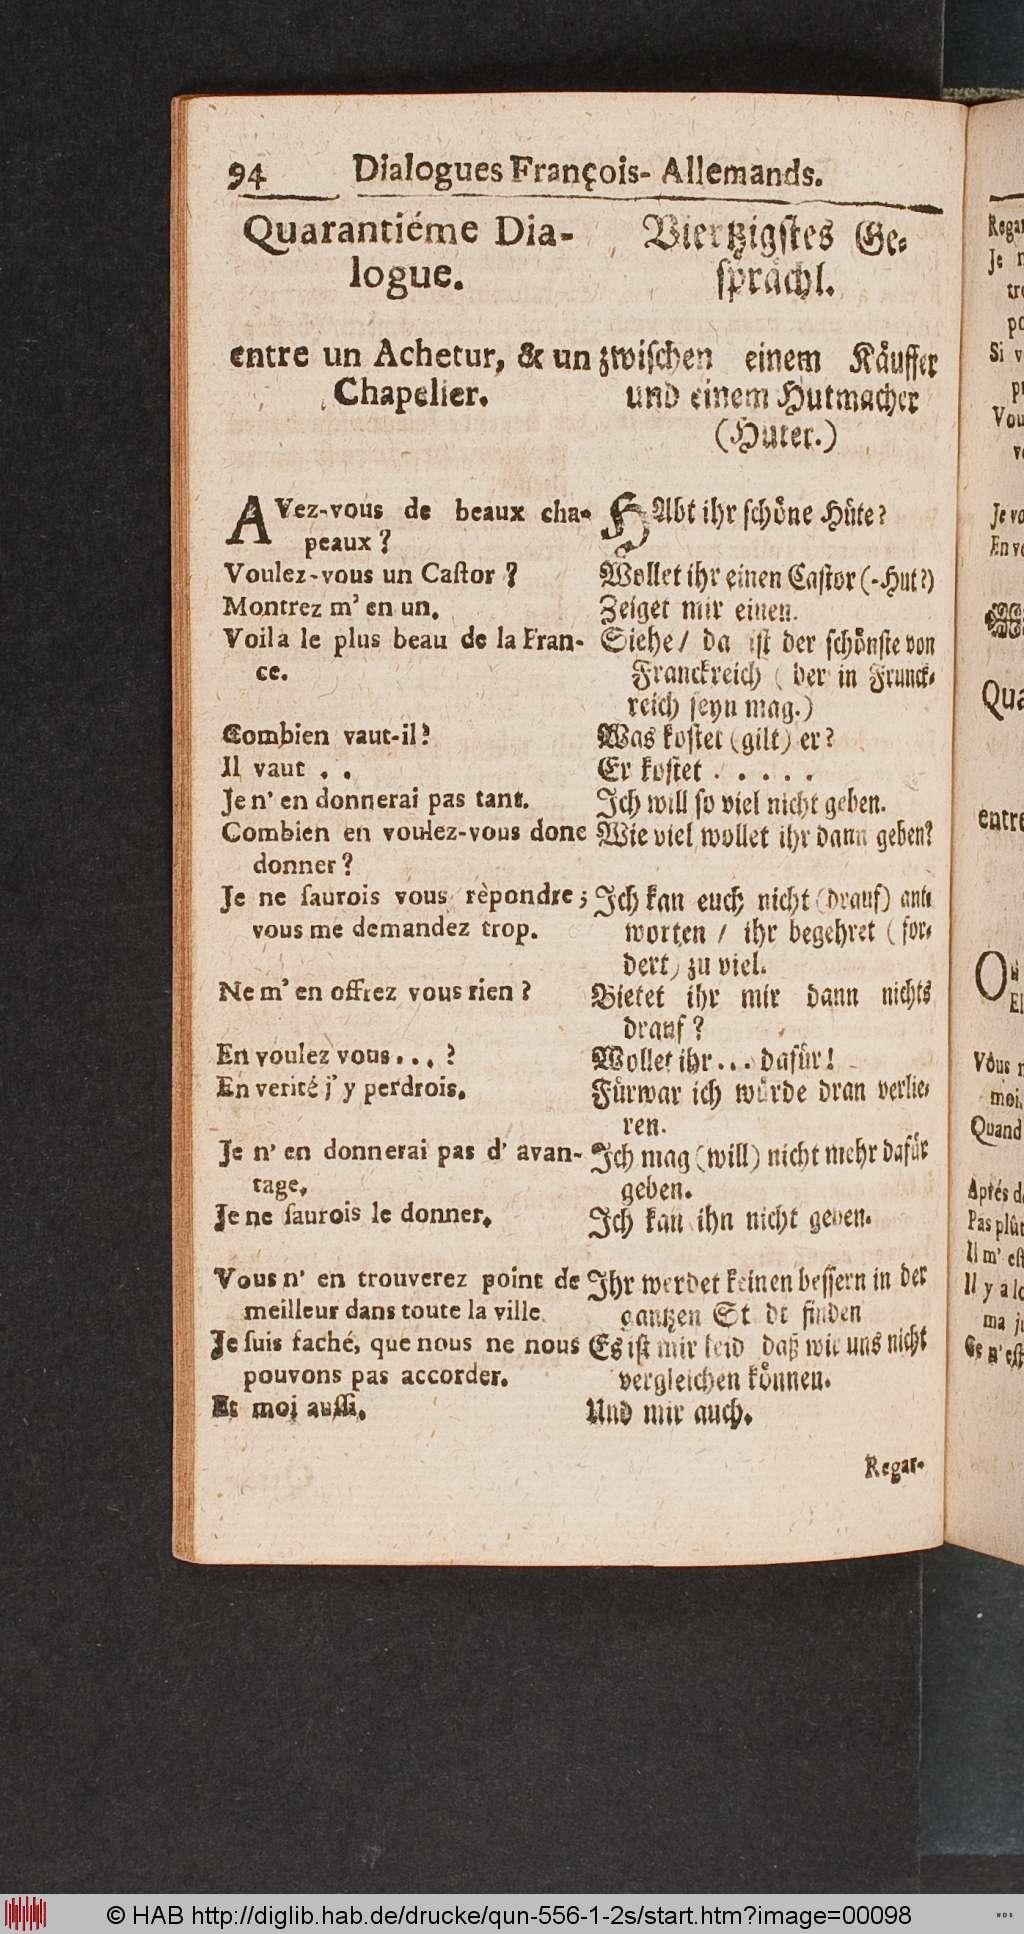 94 Dialogues François-Allemands.
Quarantiéme Dia-
logue.
entre un Achetur, & un
Chapelier.
AVez-vous de beaux cha-
peaux ?
Voulez-vous un Castor ?
Montrez m' en un.
Voila le plus beau de la Fran-
ce.
Combien vaut-il?
Il vaut . .
Je n' en donnerai pas tant.
Combien en voulez-vous donc
donner ?
Je ne saurois vous rèpondre;
vous me demandez trop.
Ne m' en offrez vous rien ?
En voulez vous . . . ?
En verité j' y perdrois.
Je n' en donnerai pas d' avan-
tage.
Je ne saurois le donner.
Vous n' en trouverez point de
meilleur dans toute la ville.
Je suis faché, que nous ne nous
pouvons pas accorder.
Et moi aussi.
Viertzigstes Ge-
sprächl.
zwischen einem Käuffer
und einem Hutmacher
(Huter.)
HAbt ihr schöne Hüte?
Wollet ihr einen Castor (-Hut?)
Zeiget mir einen.
Siehe / da ist der schönste von
Franckreich ( der in Frunck-
reich seyn mag.)
Was kostet (gilt) er?
Er kostet . . . . .
Ich will so viel nicht geben.
Wie viel wollet ihr dann geben?
Ich kan euch nicht (drauf) ant-
worten / ihr begehret ( for-
dert) zu viel.
Bietet ihr mir dann nichts
drauf ?
Wollet ihr . . . dafür!
Fürwar ich würde dran verlie-
ren.
Ich mag (will) nicht mehr dafür
geben.
Ich kan ihn nicht geben.
Ihr werdet keinen bessern in der
gantzen St dt finden
Es ist mir leid daß wir uns nicht
vergleichen können.
Und mir auch.
Regar-
Je
Si v
Vou
Qua
entre
Vous
moi
Quand
Aprés d
Pas plût
Il m' est
Il y a lo
© HAB http://diglib.hab.de/drucke/qun-556-1-2s/start.htm?image=00098